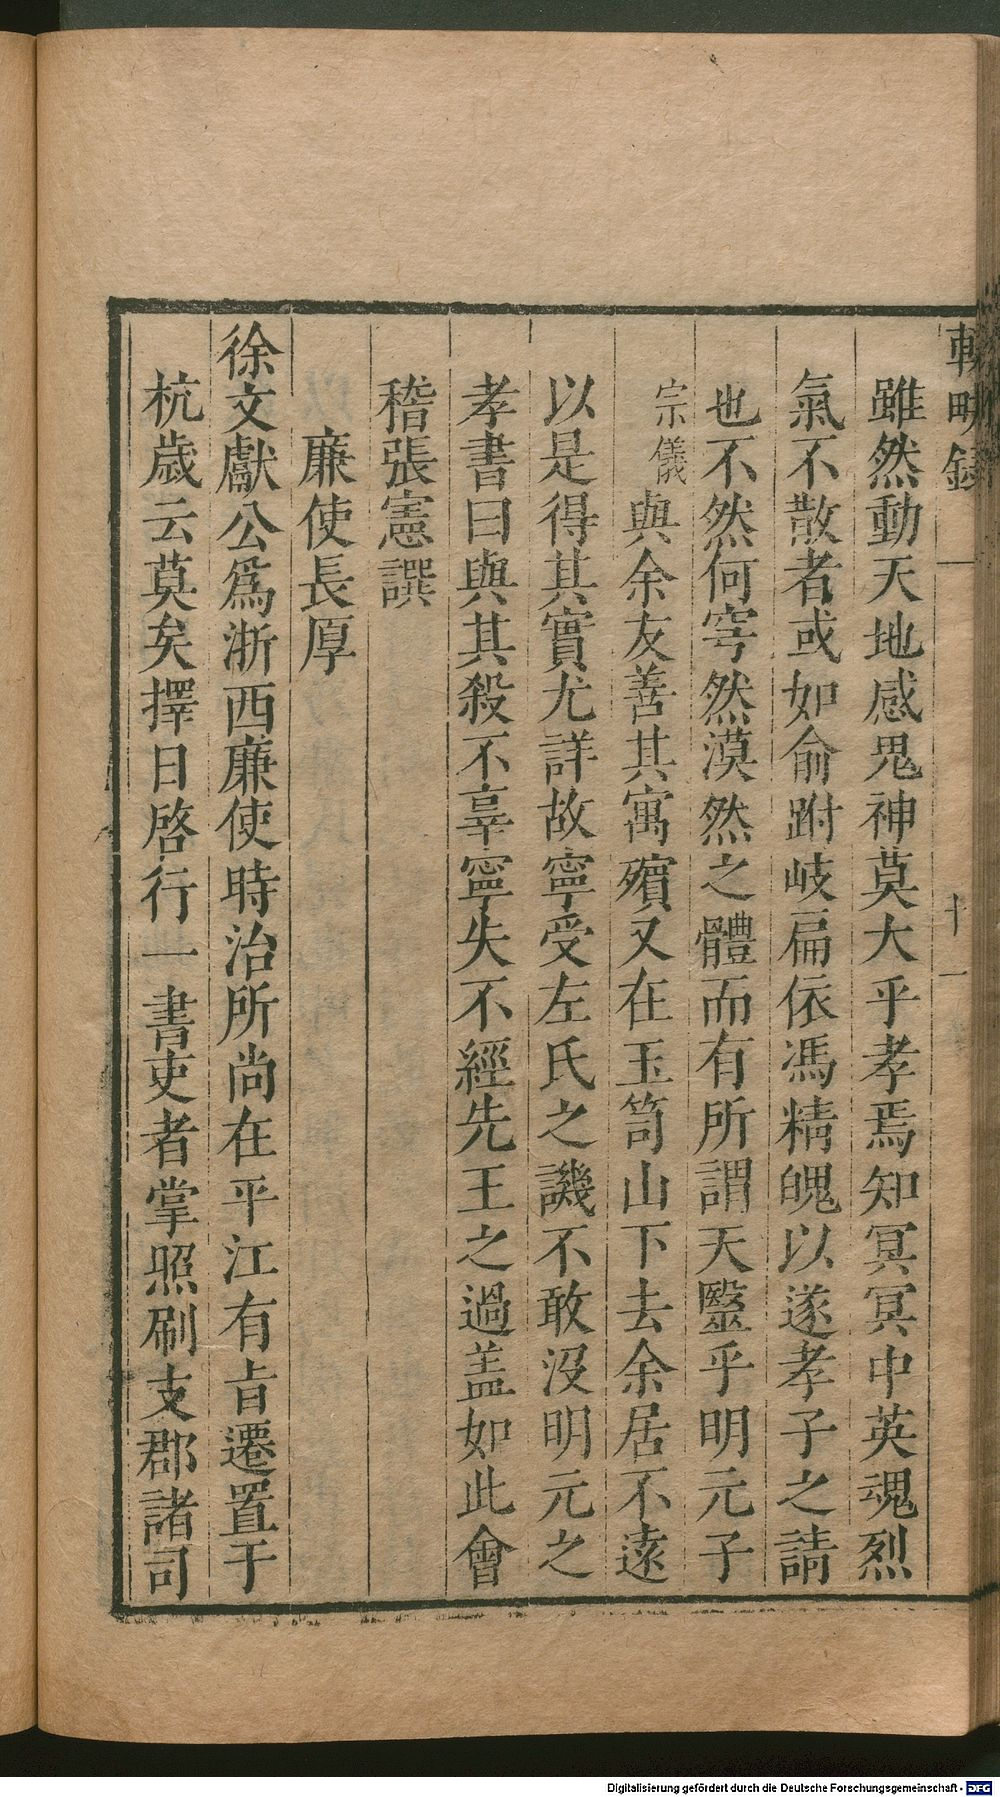 雖然動天地感鬼神莫大乎孝焉知冥冥中英魂烈
氣不散者或如俞跗岐扁依馮精魄以遂孝子之請
也不然何窅然漠然之體而有所謂天毉乎明元子
宗儀與余友善其寓殯又在玉笥山下去余居不遠
以是得其實尤詳故寧受左氏之譏不敢沒明元之
孝書曰與其殺不辜寧失不經先王之過盖如此會
稽張憲譔
廉使長厚
徐文獻公爲浙西廉使時治所尚在平江有㫖遷置于
杭歲云莫矣擇日啓行一書吏者掌照刷支郡諸司
十一
Digitalisierung gefördert durch die Deutsche Forschungsgemeinschaft - DFG